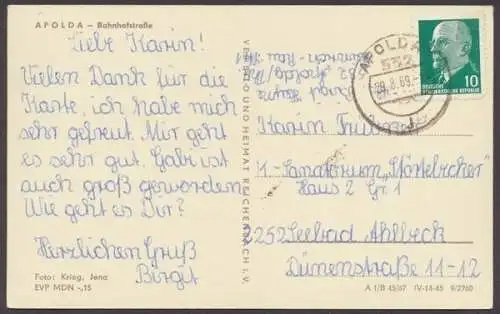 APOLDA – Bahnhofstraße
Liebe Karin!
Vielen Dank für die
Karte, ich habe mich
sehr gefreut. Mir geht
es sehr gut. Gabi ist
auch groß geworden.
Wie geht es Dir?
Herzlichen Gruß
Birgit
Foto: Krieg, Jena
EVP MDN -,15
VERLAG BILD UND HEIMAT REICHENBACH I. V.
Birgit
532 Apolda
APOLDA
532
29.8.69.
DEUTSCHE
DEMOKRATISCHE REPUBLIK
10
Karin
K.-Sanatorium
Haus 2 Gr. 1
2252 Seebad Ahlbeck
Dünenstraße 11-12
A 1/B 45/67 IV-14-45 9/2760